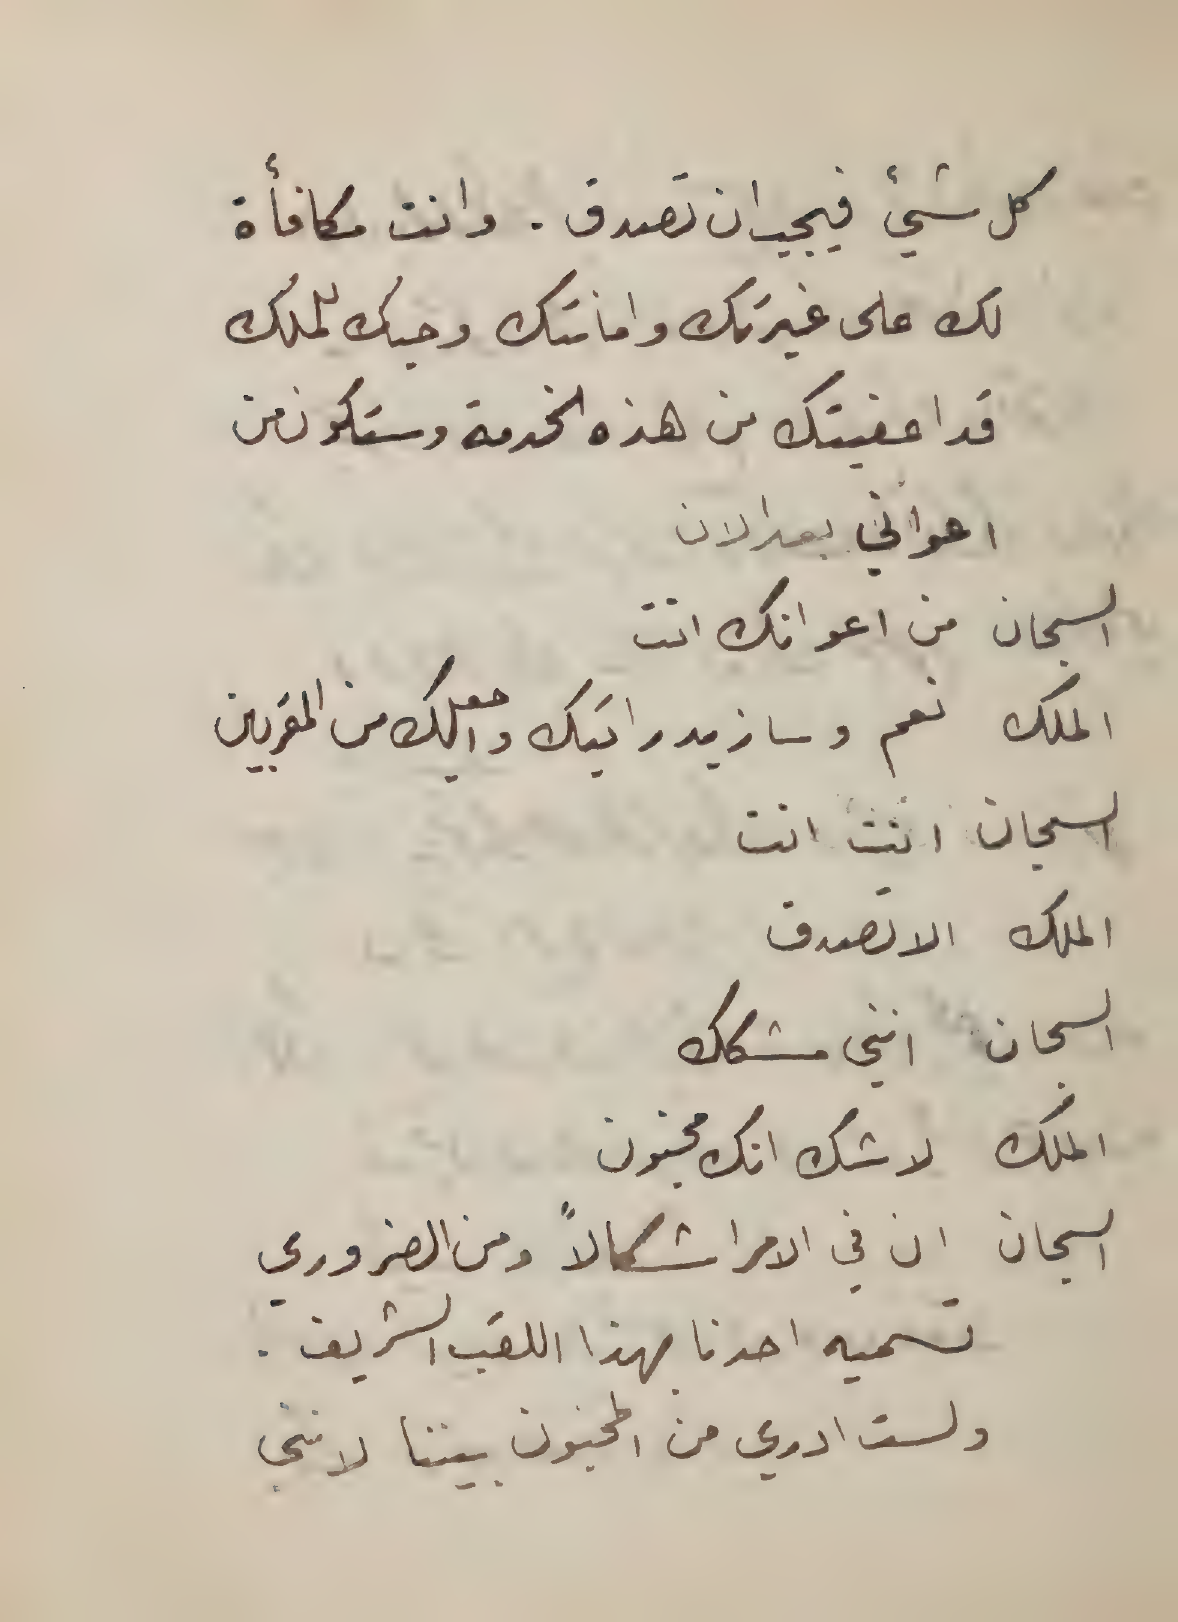 كل شيئ فيجب ان تصدق . وانت مكافأة
لك على غيرتك وامانتك وحبك للملك
قد اعفيتك من هذه الخدمة وستكون من
اعواني بعد الان
السجان من اعوانك انت
الملك نعم وسازيد راتبك واجعلك من المقربين
السجان انت انت
الملك الا تصدق
السجان انني مشكك
الملك لا شك انك مجنون
السجان ان في الامر اشكالاً ومن الضروري
تسميه احدنا بهذا اللقب الشريف .
ولست ادري من المجنون بيننا لانني